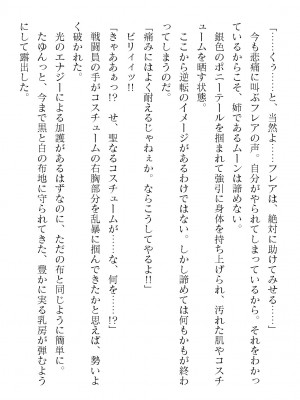 「……くぅ……と、当然よ……フレアは、絶対に助けてみせる……」
今も悲痛に叫ぶフレアの声。自分がやられてしまっているから。それをわかっ
ているからこそ、姉であるムーンは諦めない。
銀色のポニーテールを掴まれて強引に身体を持ち上げられ、汚れた肌やコスチ
ュームを晒す状態。
ここから逆転のイメージがあるわけではない。しかし諦めては何もかもが終わ
ってしまうのだ。
「痛みにはよく耐えるじゃねぇか。ならこうしてやるよ!!」
ビリィィッ!!
「きゃああぁっ!?　せ、聖なるコスチュームが……な、何を……!?」
戦闘員の手がコスチュームの右胸部分を乱暴に掴んできたかと思えば、勢いよ
く破かれた。
光のエナジーによる加護があるはずなのに、ただの布と同じように簡単に。
たゆんっと、今まで黒と白の布地に守られてきた、豊かに実る乳房が弾むよう
にして露出した。